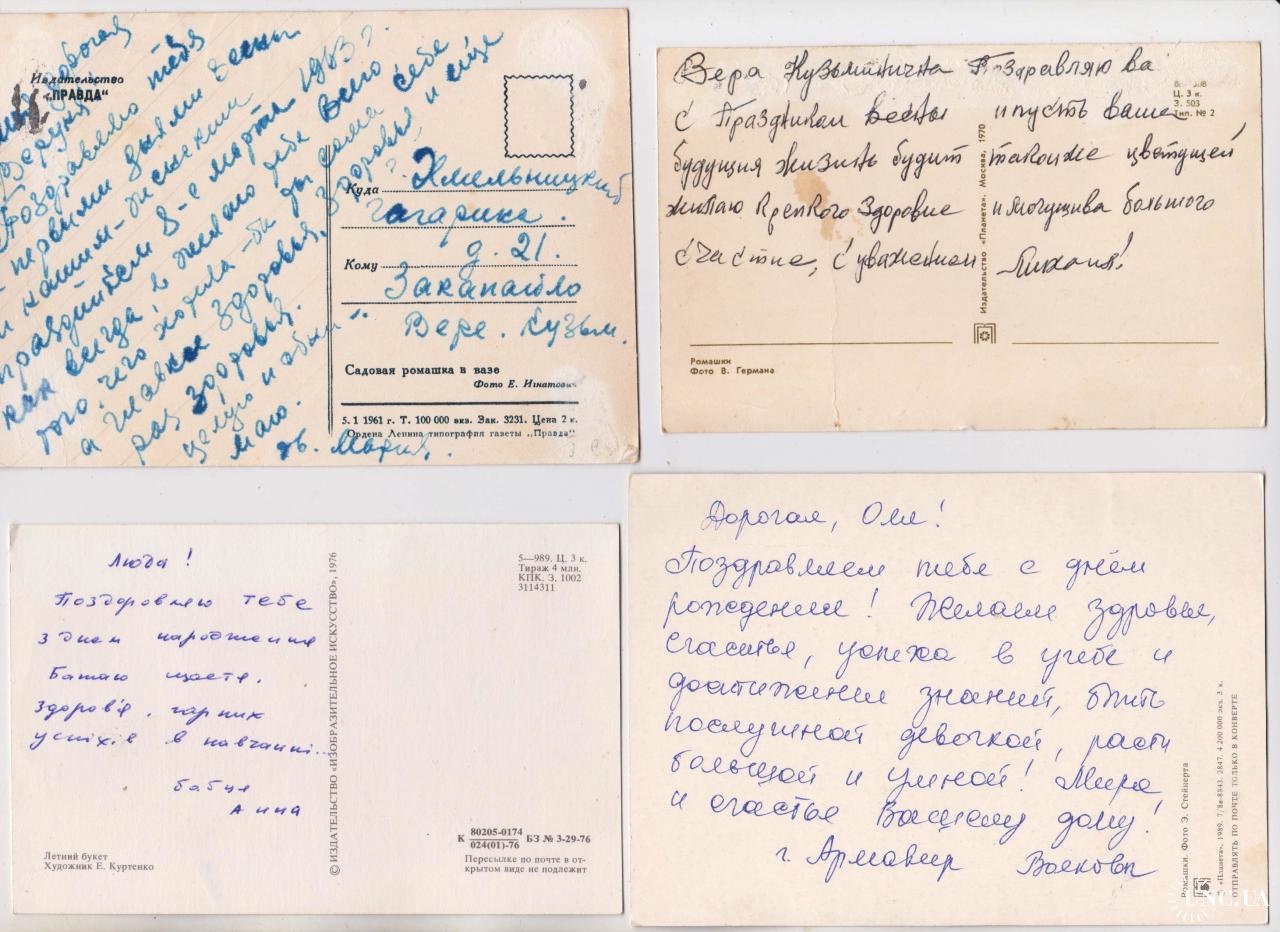 Издательство
„ПРАВДА"
дорогая
Верун
Поздравляю тебя
с первыми днями весны
и нашим женским
праздником 8-е марта 1963 г.
как всегда желаю тебе всего
того, чего желала-бы ты сама себе
а главное здоровья, здоровья и еще
раз здоровья.
целую и обни-
маю.
Мария.
Куда Хмельницкий
Гагарина.
д. 21.
Кому
Вере. Кузьм.
Садовая ромашка в вазе
Фото Е. Игнатович
5. 1 1961 г. Т. 100 000 экз. Зак. 3231. Цена 2 к.
Ордена Ленина типография газеты „Правда"
Вера Кузьминична Поздравляю ва
с Праздником весны и пусть ваше
будущия жизнь будит такоиже цветущей
жилаю Крепкого Здоровие большого
счастие, с уважением
Ц. 3 к.
З. 503
Тип. № 2
Издательство «Планета». Москва, 1970
Ромашки
Фото В. Германа
Люда!
Поздоровляю тебе
з днем народження
Бажаю щастя,
здоров'я, гарних
успіхів в навчанні...
бабця
Анна
5—989. Ц. 3 к.
Тираж 4 млн.
КПК. З. 1002
3114311
© ИЗДАТЕЛЬСТВО «ИЗОБРАЗИТЕЛЬНОЕ ИСКУССТВО», 1976
К 80205-0174 БЗ № 3-29-76
024(01)-76
Пересылке по почте в от-
крытом виде не подлежит
Летний букет
Художник Е. Куртенко
Дорогая, Оля!
Поздравляем тебе с днём
рождении! Желаем здровья,
счастья, успеха в учебе и
достижении знаний, быть
послушной девочкой, расти
большой и умной! Мира
и счастье Вашему дому!
г. Армавир Волковы
Ромашки. Фото Э. Стейнерта
«Планета», 1989. 7/8в-8843. 2847. 4 200 000 экз. 3 к.
ОТПРАВЛЯТЬ ПО ПОЧТЕ ТОЛЬКО В КОНВЕРТЕ
UNC.UA